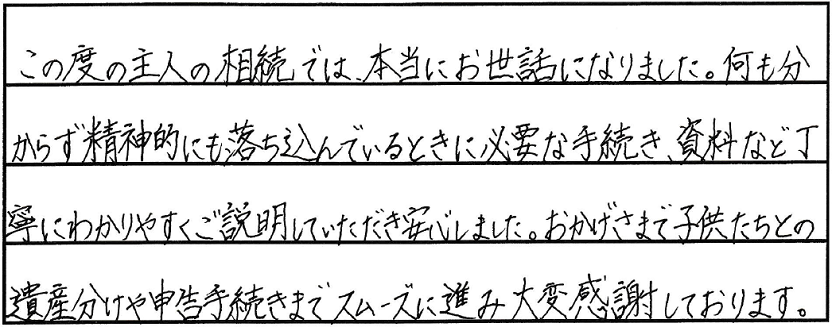 この度の主人の相続では、本当にお世話になりました。何も分
からず精神的にも落ち込んでいるときに必要な手続き、資料など丁
寧にわかりやすくご説明していただき安心しました。おかげさまで子供たちとの
遺産分けや申告手続きまでスムーズに進み大変感謝しております。